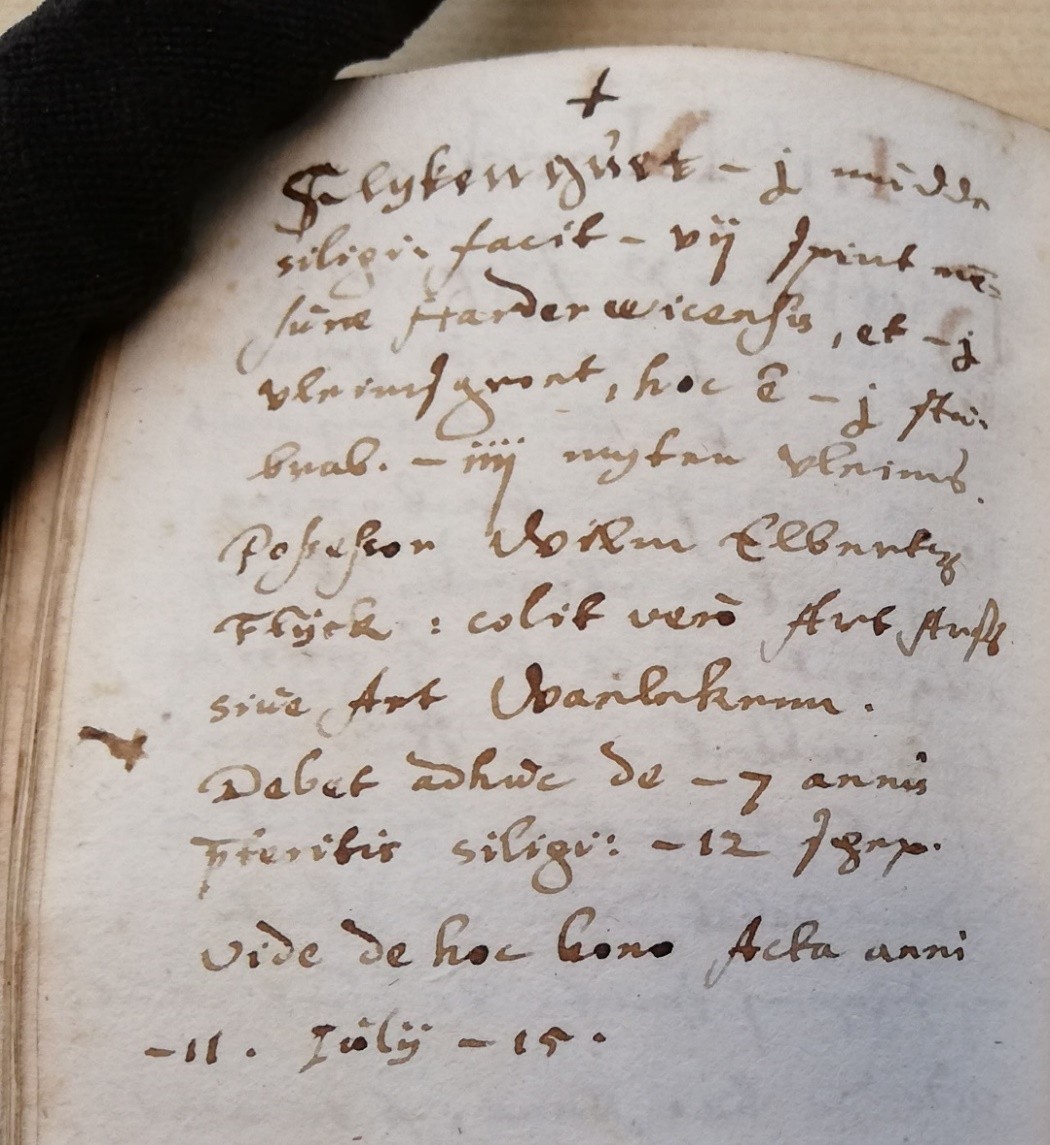 +
Slykenguet - j mudde
siligi: facit - vij spint me=
sure Harderwicensis, et - j
vleims groet, hoc ē - j stu:
brab. - iiij myten vleims.
Possessor Wilm Elbertz
Flÿck : colit vero Art Arss
sive Art Wanlekrum.
Debet adhuc de - 7 annis
p̄teritis siligi: - 12 schep.
Vide de hoc bono Acta anni
- 11 . Julÿ - 15 .